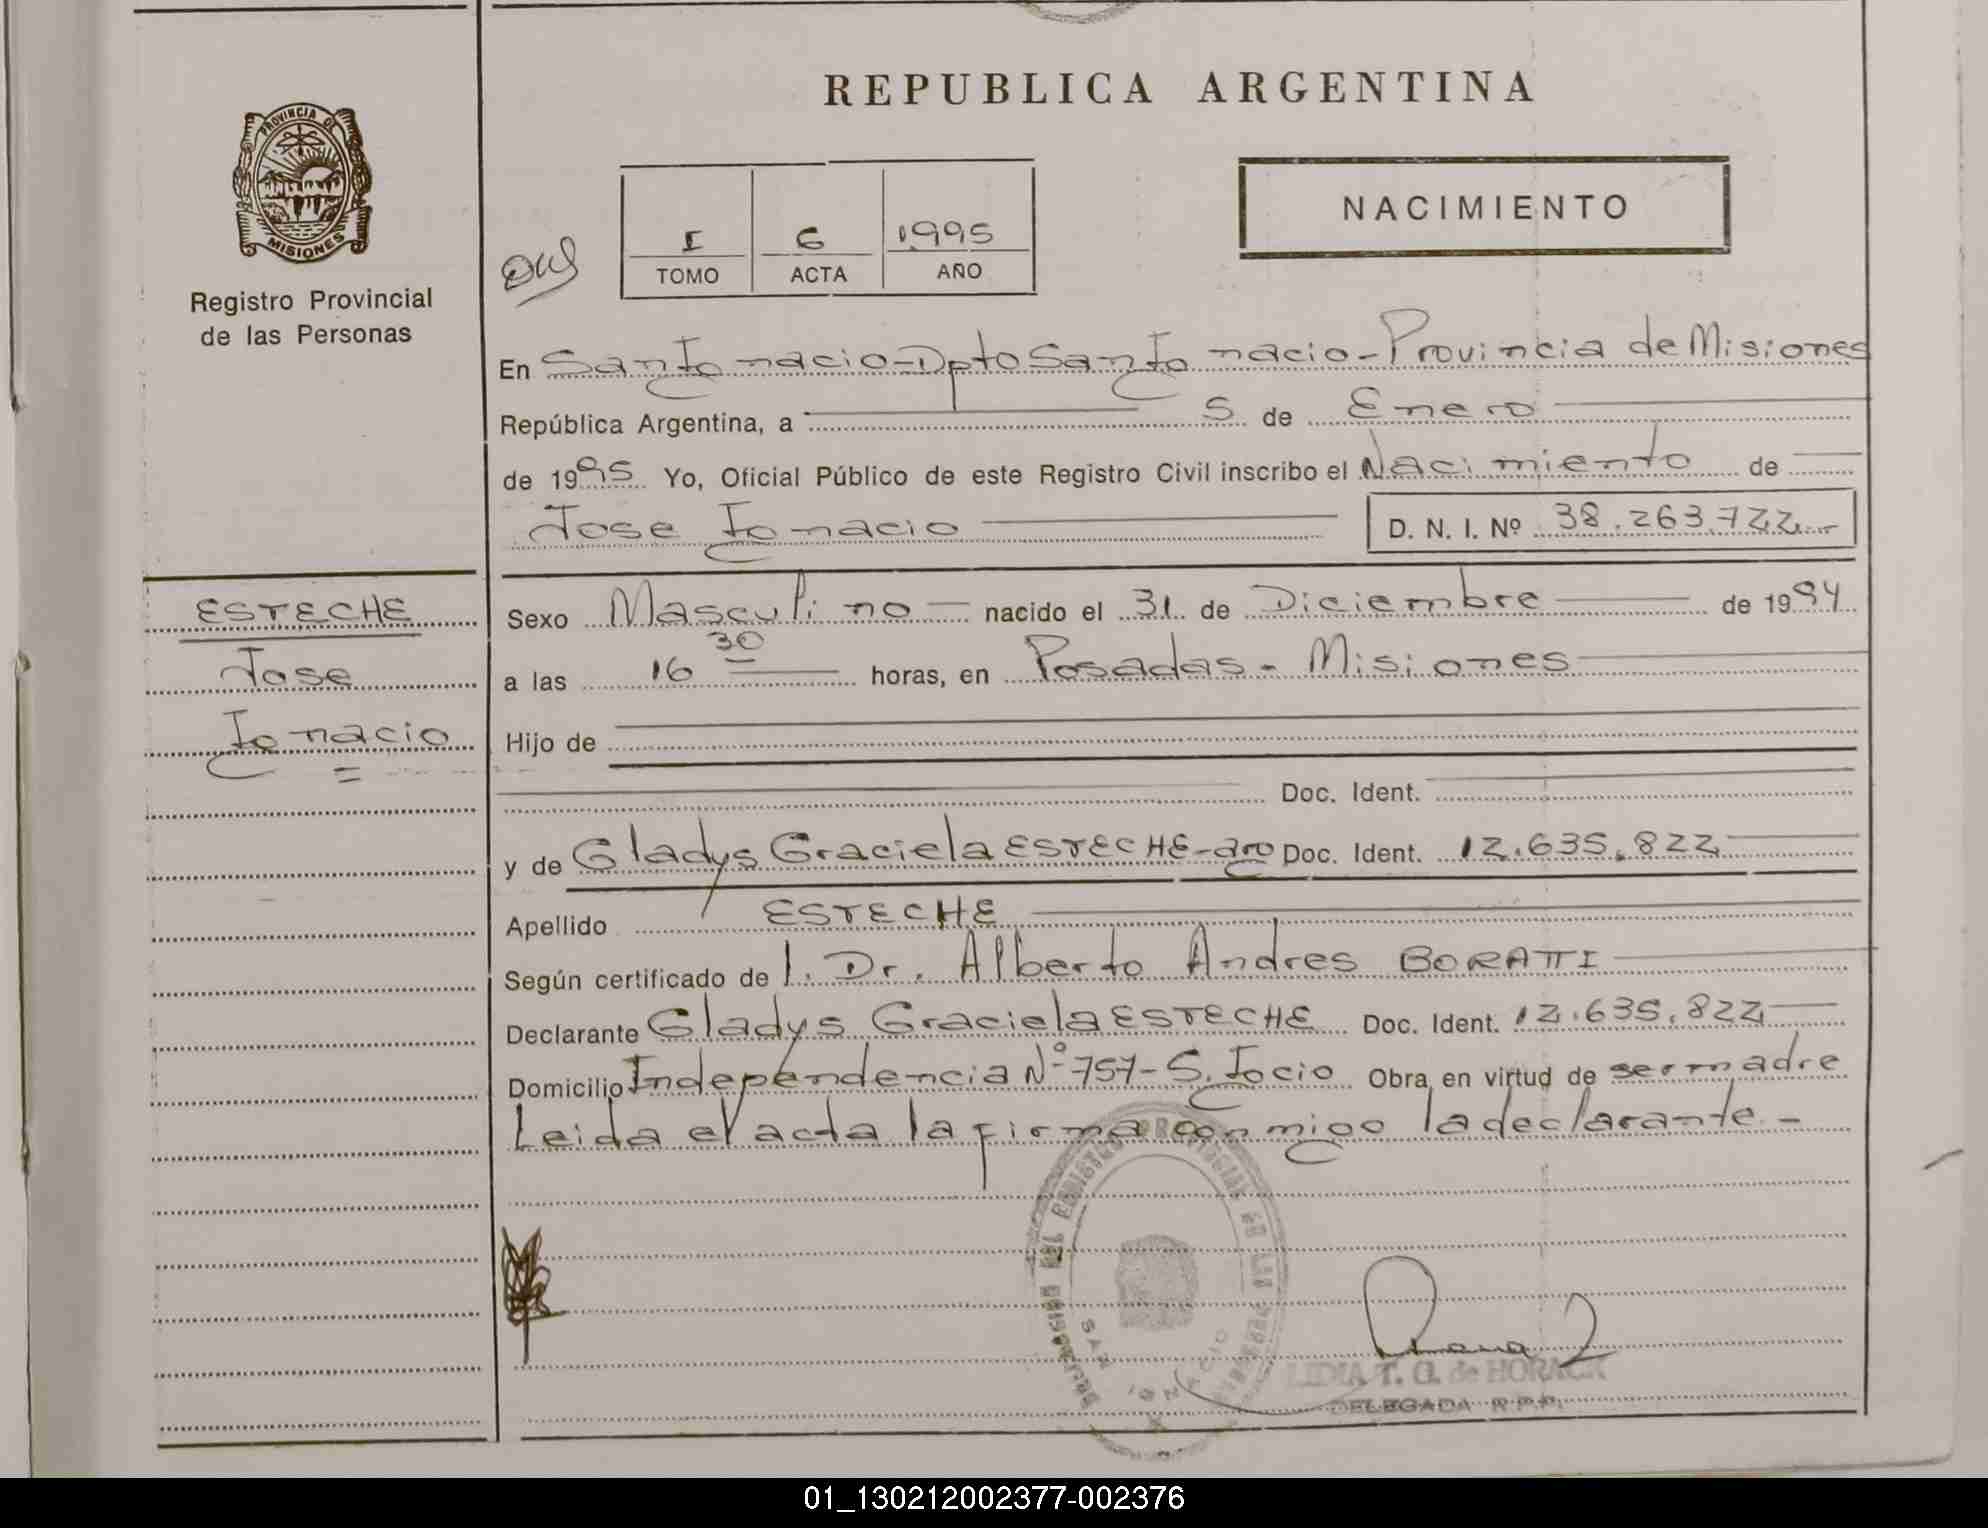 REPUBLICA ARGENTINA
PROVINCIA DE
MISIONES
Registro Provincial
de las Personas
I 6 1995
TOMO ACTA AÑO
NACIMIENTO
En San Ignacio - Dpto San Ignacio - Provincia de Misiones
República Argentina, a 5 de Enero
de 1995 Yo, Oficial Público de este Registro Civil inscribo el Nacimiento de
Jose Ignacio D. N. I. Nº 38.263.722
ESTECHE
Jose
Ignacio
Sexo Masculino nacido el 31 de Diciembre de 1994
a las 16 30 horas, en Posadas - Misiones
Hijo de
Doc. Ident.
y de Gladys Graciela ESTECHE - arg Doc. Ident. 12.635.822
Apellido ESTECHE
Según certificado de l. Dr. Alberto Andres BORATTI
Declarante Gladys Graciela ESTECHE Doc. Ident. 12.635.822
Domicilio Independencia Nº 757 - S. Igcio Obra en virtud de ser madre
Leida el acta la firma conmigo la declarante. -
SAN IGNACIO
LIDIA T. G. de HORACK
DELEGADA R.P.P.
01_130212002377-002376